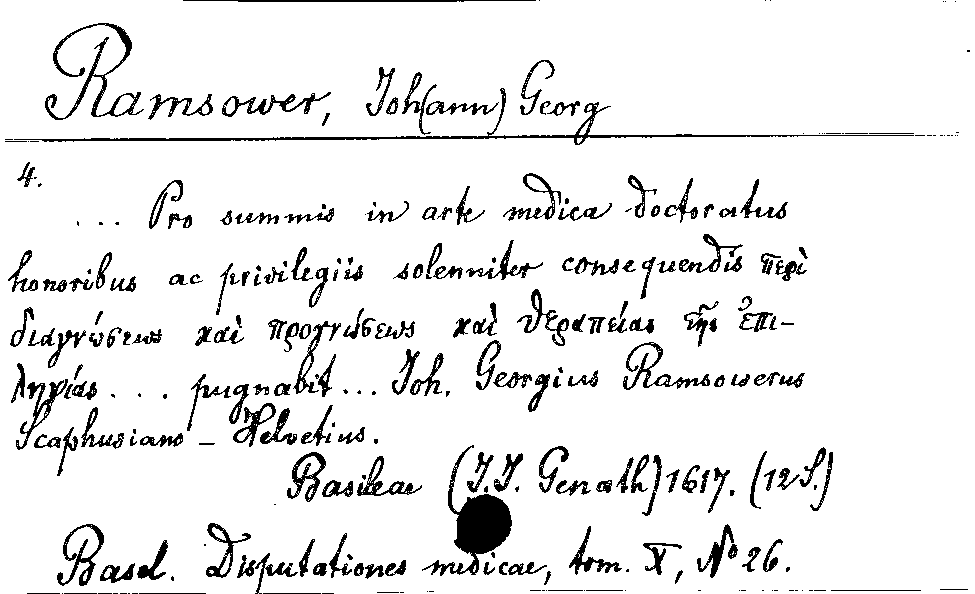 Ramsower, Joh(ann) Georg
4.
... Pro summis in arte medica doctoratus
honoribus ac privilegiis solenniter consequendis περὶ
διαγνώσεως καὶ προγνώσεως καὶ θεραπείας τῆς ἐπι-
ληψίας . . . pugnabit ... Joh. Georgius Ramsowerus
Scaphusiano - Helvetius.
Basileae (J.J. Genath) 1617. (12 S.)
Basel. Disputationes medicae, tom. X, No 26.